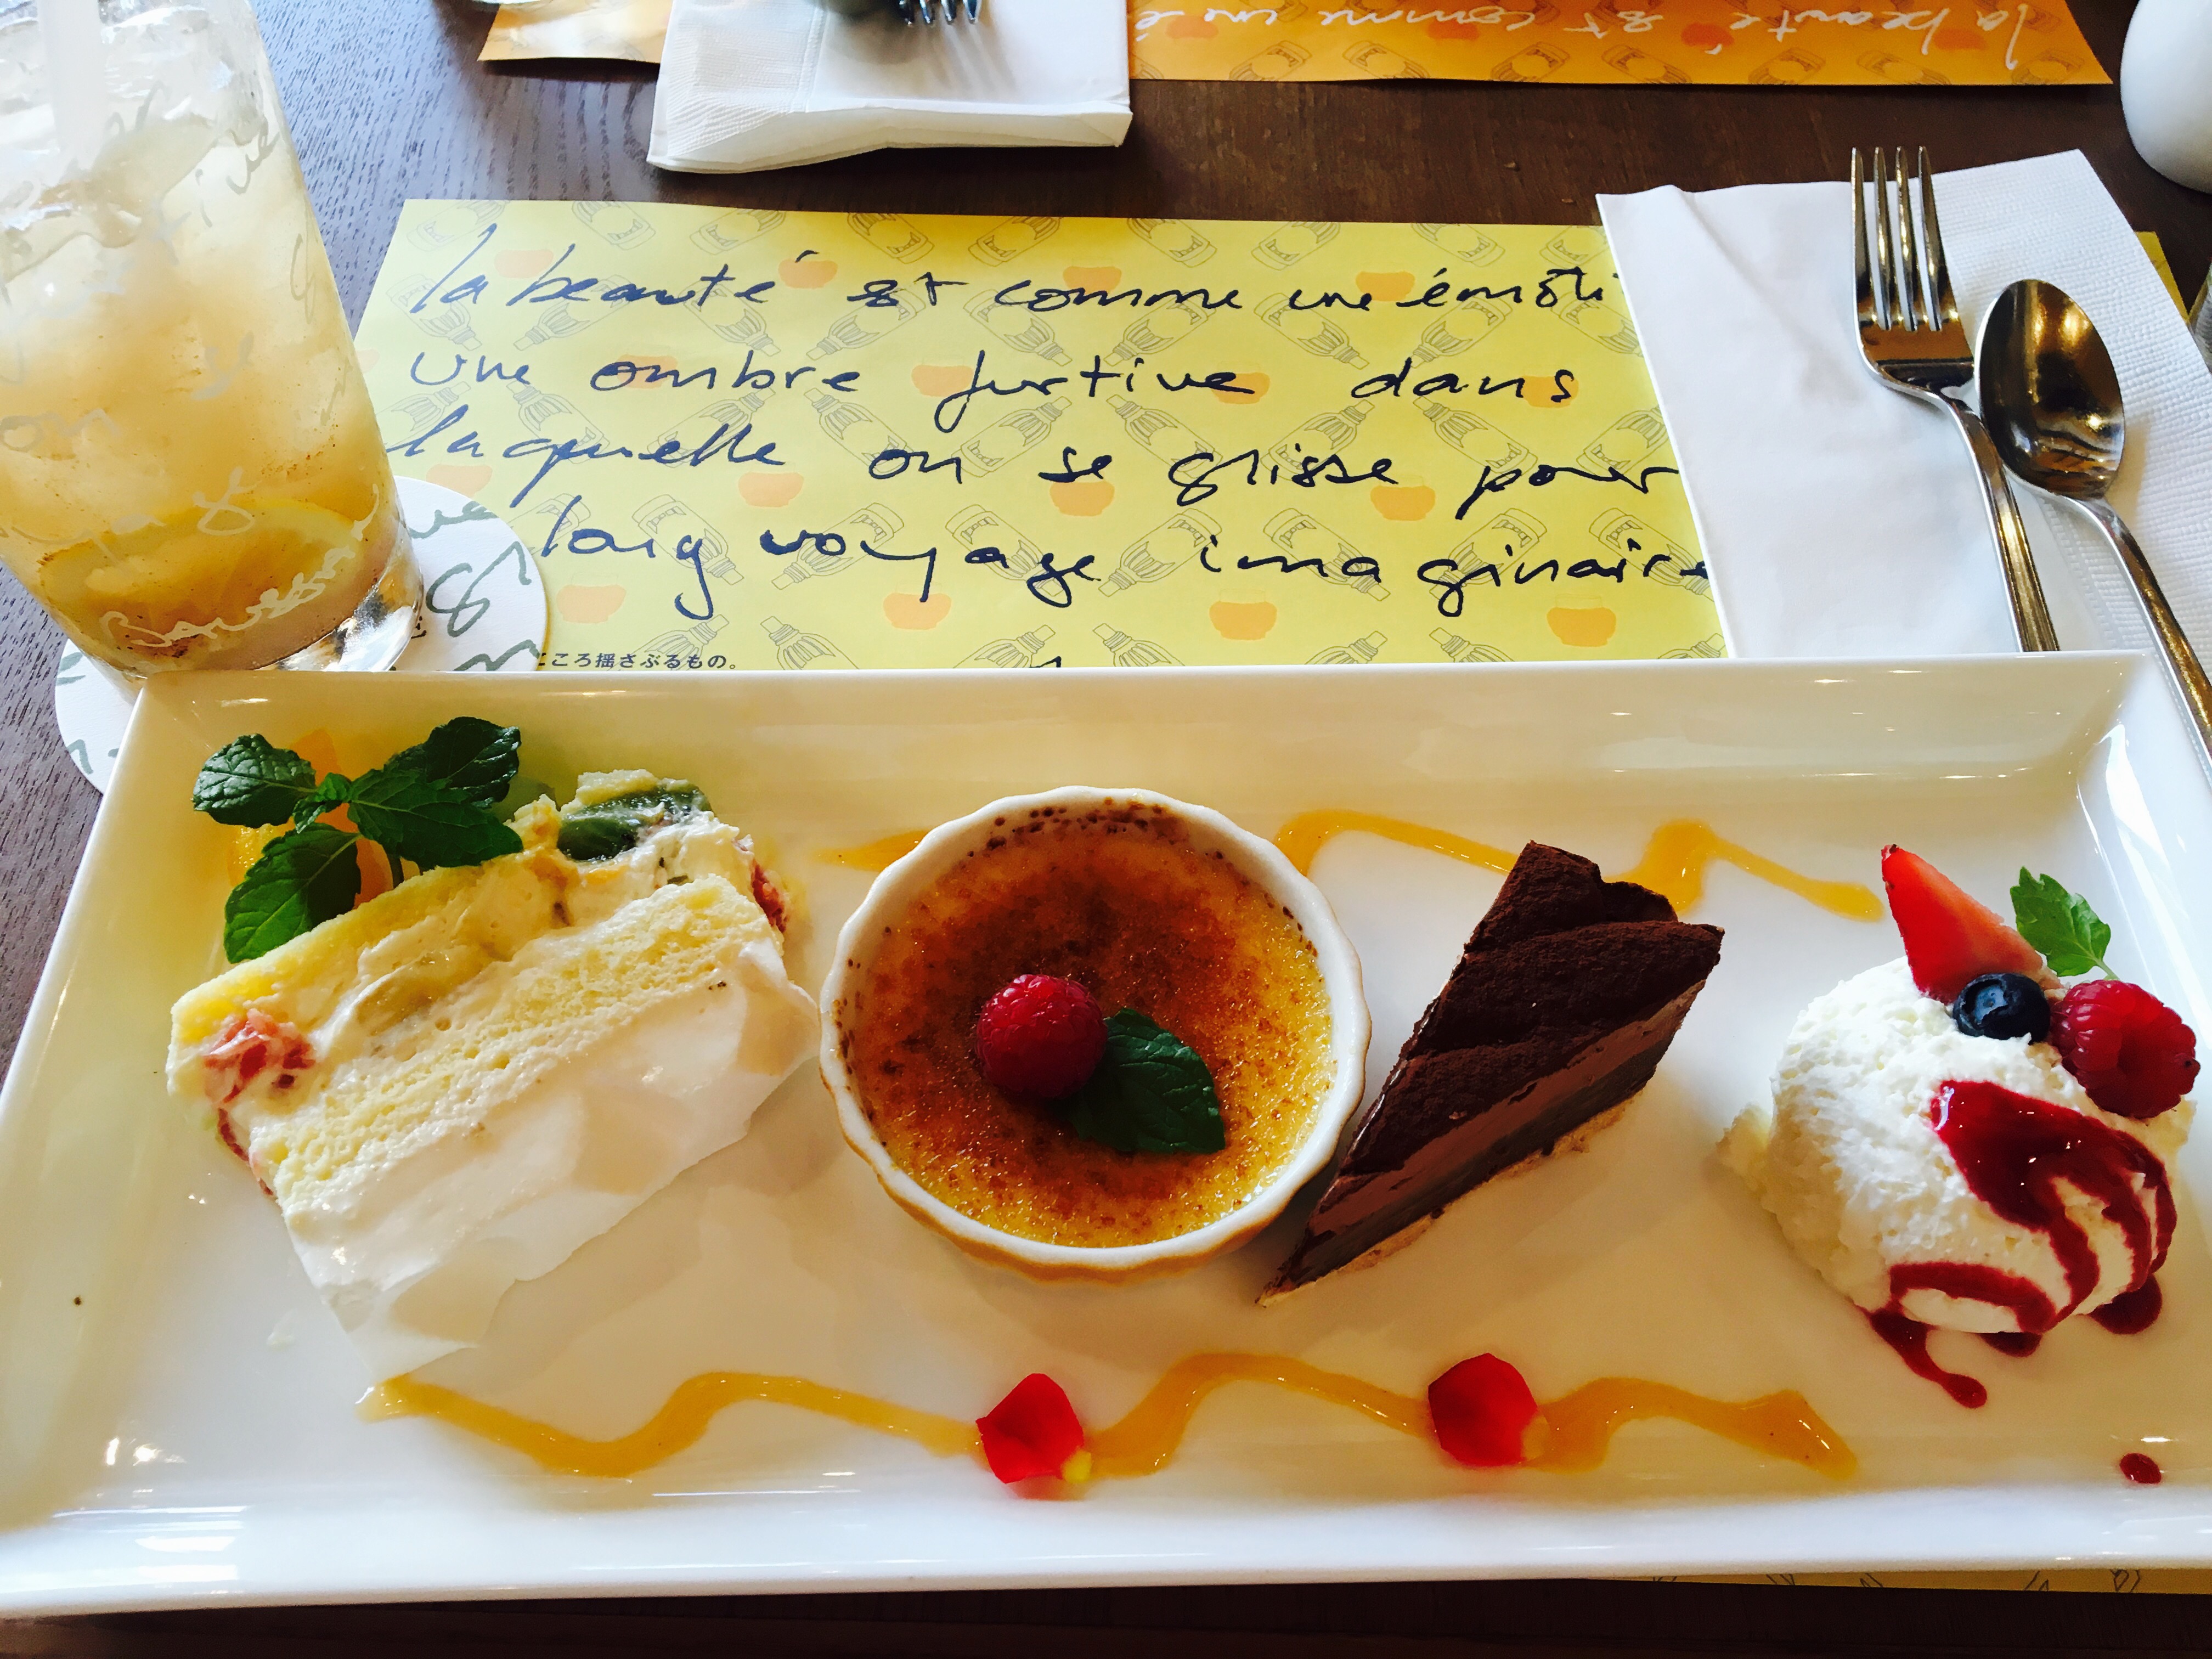 la beauté est comme une é
la beauté est comme une émoti
une ombre furtive dans
laquelle on se glisse pour
long voyage imaginaire
こころ揺さぶるもの。